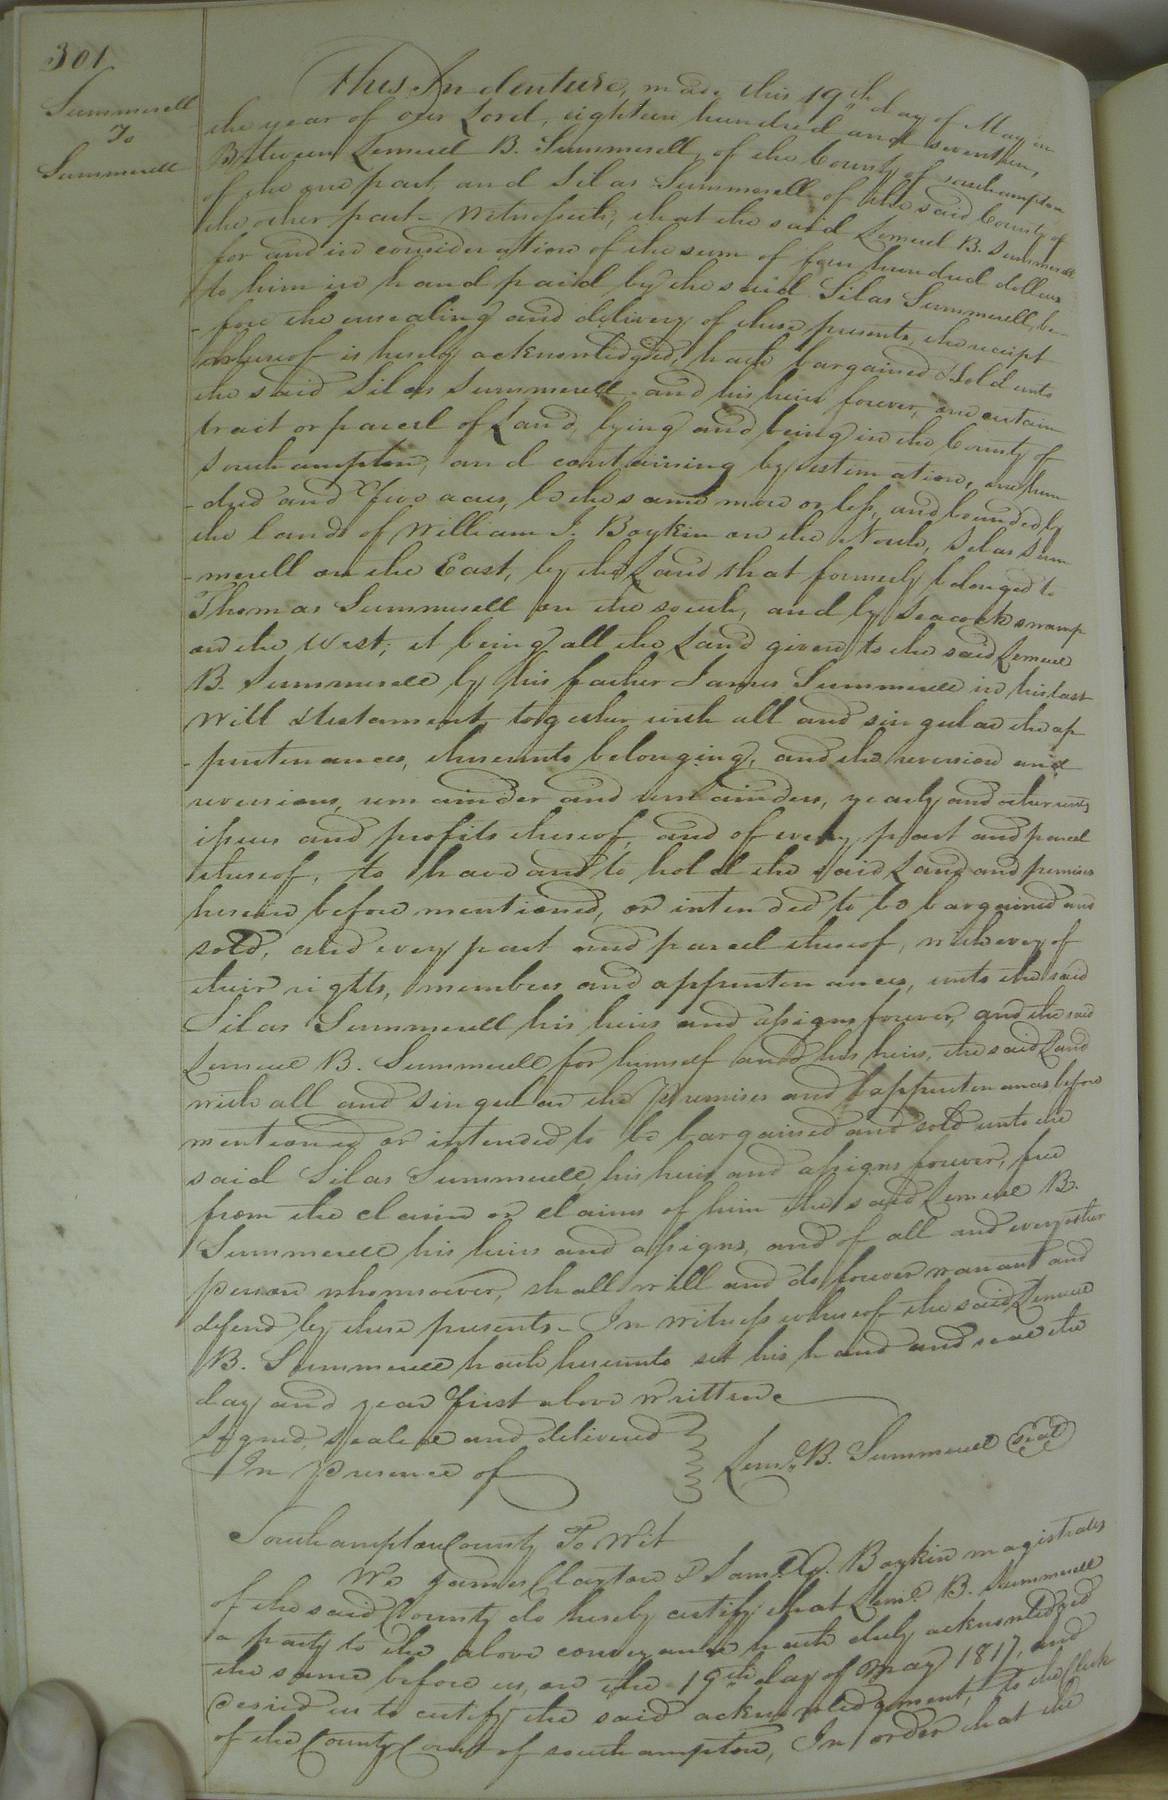 301
Summerell
To
Summerell
This Indenture, made this 19th day of May in
the year of our Lord, eighteen hundred and seventeen,
Between Lemuel B. Summerell, of the County of Southampton
of the one part, and Silas Summerell of the said County of
the other part Witnesseth, that the said Lemuel B. Summerell
for and in consideration of the sum of four hundred dollars
to him in hand paid by the said Silas Summerell, be-
-fore the ensealing and delivery of these presents, the receipt
whereof is hereby acknowledged, hath bargained & Sold unto
the said Silas Summerell and his heirs forever, one certain
tract or parcel of Land, lying and being in the County of
Southampton, and containing by estimation, one hun-
-dred and Two acres, be the same more or less, and bounded by
the lands of William J. Boykin on the North, Silas Sum
-merell on the East, by the Land that formerly belonged to
Thomas Summerell on the south, and by Seacock swamp
on the West; it being all the Land given to the said Lemuel
B. Summerell by his father James Summerell in his last
Will & testament together with all and singular the ap
-purtenances, thereunto belonging, and the reversion and
reversions, remainder and remainders, yearly and other rents
issues and profits thereof, and of every part and parcel
thereof, to have and to hold the said Land and premises
herein before mentioned, or intended to be bargained and
sold, and every part and parcel thereof, with every of
their rights, members and appurtenances, unto the said
Silas Summerell his heirs and assigns forever, and the said
Lemuel B. Summerell for himself and his heirs, the said Land
with all and singular the Premises and appurtenances before
mentioned or intended to be bargained and sold unto the
said Silas Summerell, his heirs and assigns forever, free
from the claim or claims of him the said Lemuel B.
Summerell his heirs and assigns, and of all and every other
person whomsoever, shall will and do forever warrant and
defend by these presents - In witness whereof the said Lemuel
B. Summerell hath hereunto set his hand and seal the
day and year first above written
Signed, sealed and delivered
In presence of
Leml. B. Summerell Seal
Southampton County To Wit
We James Clayton & Saml. Boykin magistrates
of the said County do hereby certify that Leml. B. Summerell
a party to the above conveyance hath duly acknowledged
the same before us, on the 19th day of May 1817, and
desired us to certify the said acknowledgement, to the Clerk
of the County Court of Southampton, In order that the